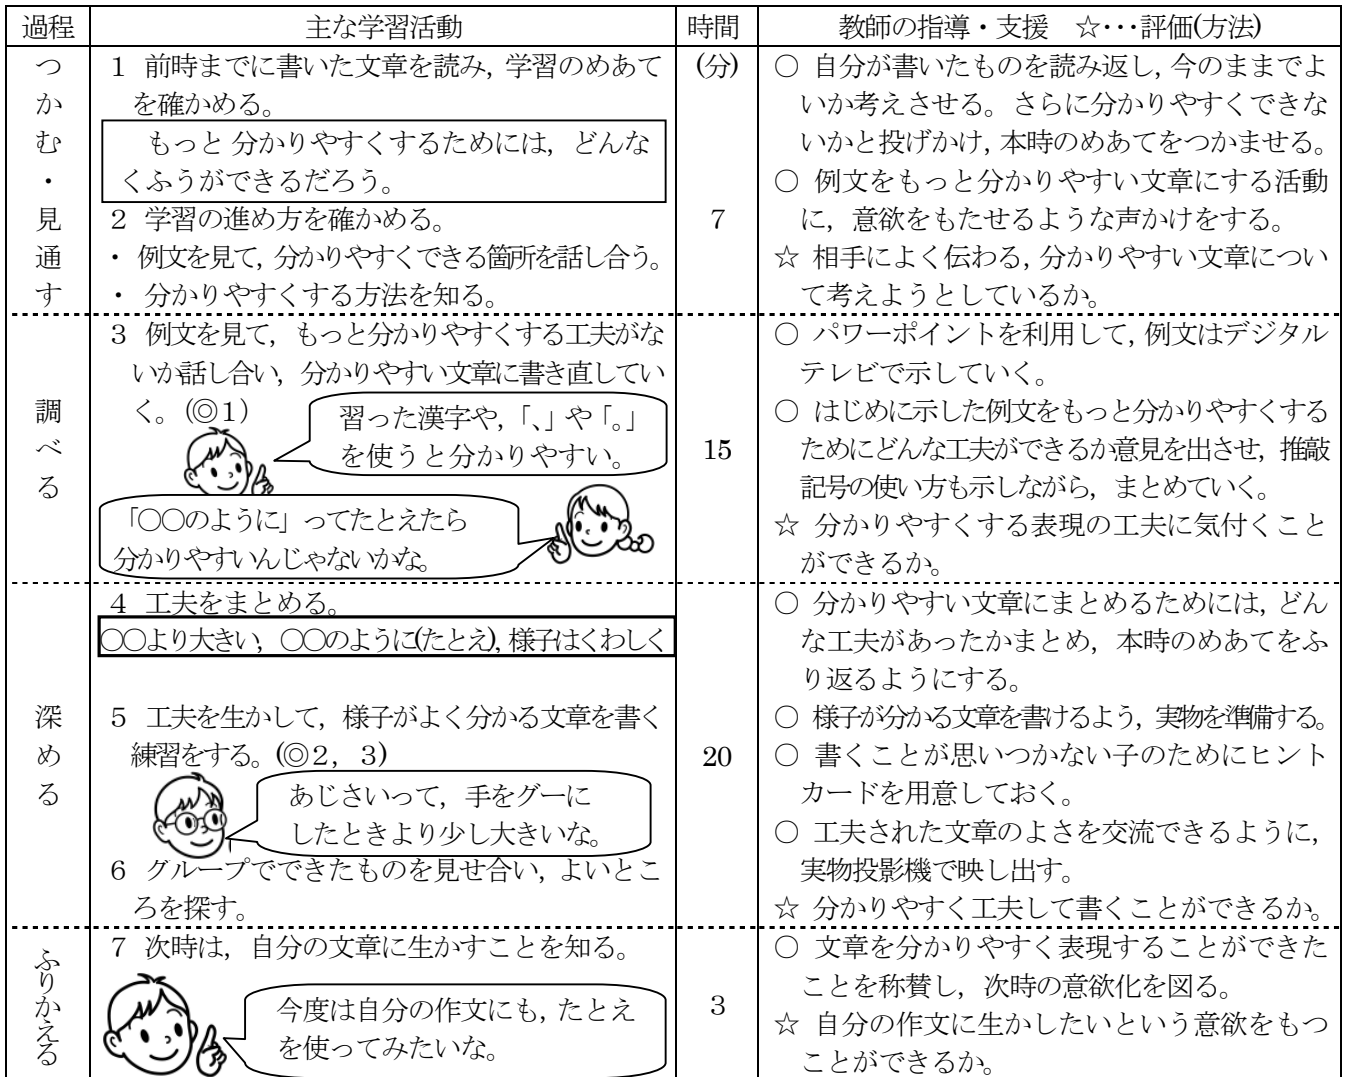 過程 主な学習活動 時間 教師の指導・支援 ☆･･･評価(方法)
つかむ・見通す
1 前時までに書いた文章を読み，学習のめあて
を確かめる。
もっと 分かりやすくするためには，どんな
くふうができるだろう。
2 学習の進め方を確かめる。
・ 例文を見て，分かりやすくできる箇所を話し合う。
・ 分かりやすくする方法を知る。
(分)
7
○ 自分が書いたものを読み返し，今のままでよ
いか考えさせる。さらに分かりやすくできな
いかと投げかけ，本時のめあてをつかませる。
○ 例文をもっと分かりやすい文章にする活動
に，意欲をもたせるような声かけをする。
☆ 相手によく伝わる，分かりやすい文章につい
て考えようとしているか。
調べる
3 例文を見て，もっと分かりやすくする工夫がな
いか話し合い，分かりやすい文章に書き直してい
く。(◎1)
習った漢字や，「、」や「。」
を使うと分かりやすい。
「○○のように」ってたとえたら
分かりやすいんじゃないかな。
15
○ パワーポイントを利用して，例文はデジタル
テレビで示していく。
○ はじめに示した例文をもっと分かりやすくする
ためにどんな工夫ができるか意見を出させ，推敲
記号の使い方も示しながら，まとめていく。
☆ 分かりやすくする表現の工夫に気付くこと
ができるか。
深める
4 工夫をまとめる。
○○より大きい，○○のように(たとえ)，様子はくわしく
5 工夫を生かして，様子がよく分かる文章を書く
練習をする。(◎2，3)
あじさいって，手をグーに
したときより少し大きいな。
6 グループでできたものを見せ合い，よいとこ
ろを探す。
20
○ 分かりやすい文章にまとめるためには，どん
な工夫があったかまとめ，本時のめあてをふ
り返るようにする。
○ 様子が分かる文章を書けるよう，実物を準備する。
○ 書くことが思いつかない子のためにヒント
カードを用意しておく。
○ 工夫された文章のよさを交流できるように，
実物投影機で映し出す。
☆ 分かりやすく工夫して書くことができるか。
ふりかえる
7 次時は，自分の文章に生かすことを知る。
今度は自分の作文にも，たとえ
を使ってみたいな。
3
○ 文章を分かりやすく表現することができた
ことを称賛し，次時の意欲化を図る。
☆ 自分の作文に生かしたいという意欲をもつ
ことができるか。